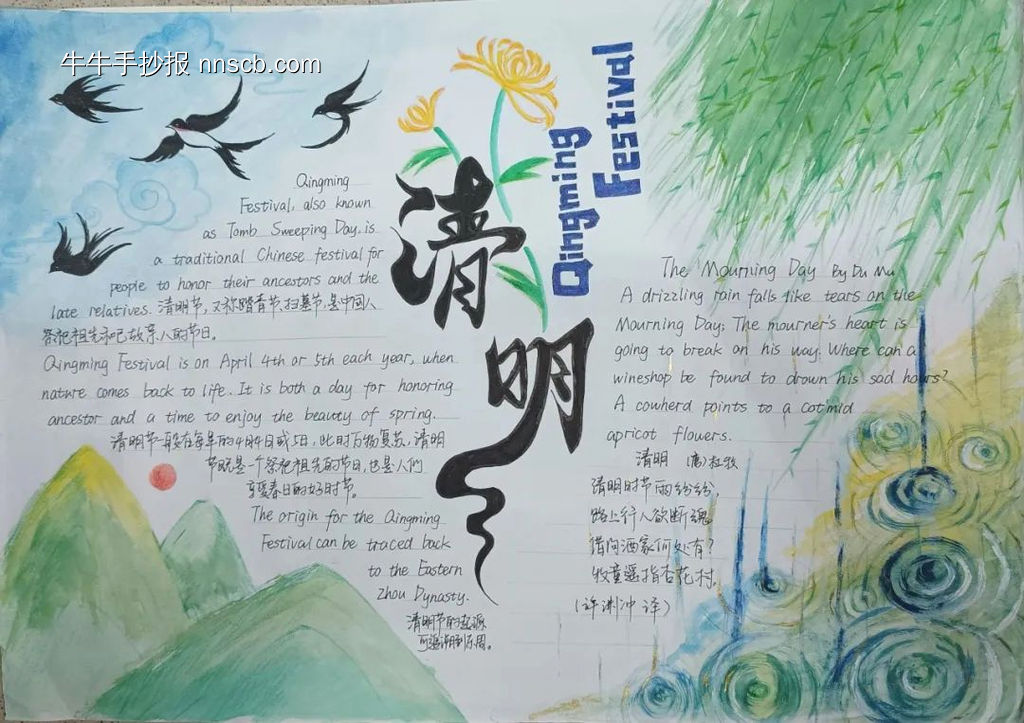 牛牛手抄报 nnscb.com
清明
Qingming
Festival
Qingming
Festival, also known
as Tomb Sweeping Day, is
a traditional Chinese festival for
people to honor their ancestors and the
late relatives. 清明节,又称踏青节、扫墓节,是中国人
祭祀祖先和已故亲人的节日。
Qingming Festival is on April 4th or 5th each year, when
nature comes back to life. It is both a day for honoring
ancestor and a time to enjoy the beauty of spring.
清明节一般在每年的4月4日或5日,此时万物复苏,清明
节既是一个祭祀祖先的节日,也是人们
享受春日的好时节。
The origin for the Qingming
Festival can be traced back
to the Eastern
Zhou Dynasty.
清明节的起源
可追溯到东周。
The Mourning Day By Du Mu
A drizzling rain falls like tears on the
Mourning Day; The mourner's heart is
going to break on his way. Where can a
wineshop be found to drown his sad hours?
A cowherd points to a cot mid
apricot flowers.
清明 (唐)杜牧
清明时节雨纷纷,
路上行人欲断魂
借问酒家何处有?
牧童遥指杏花村.
(许渊冲 译)